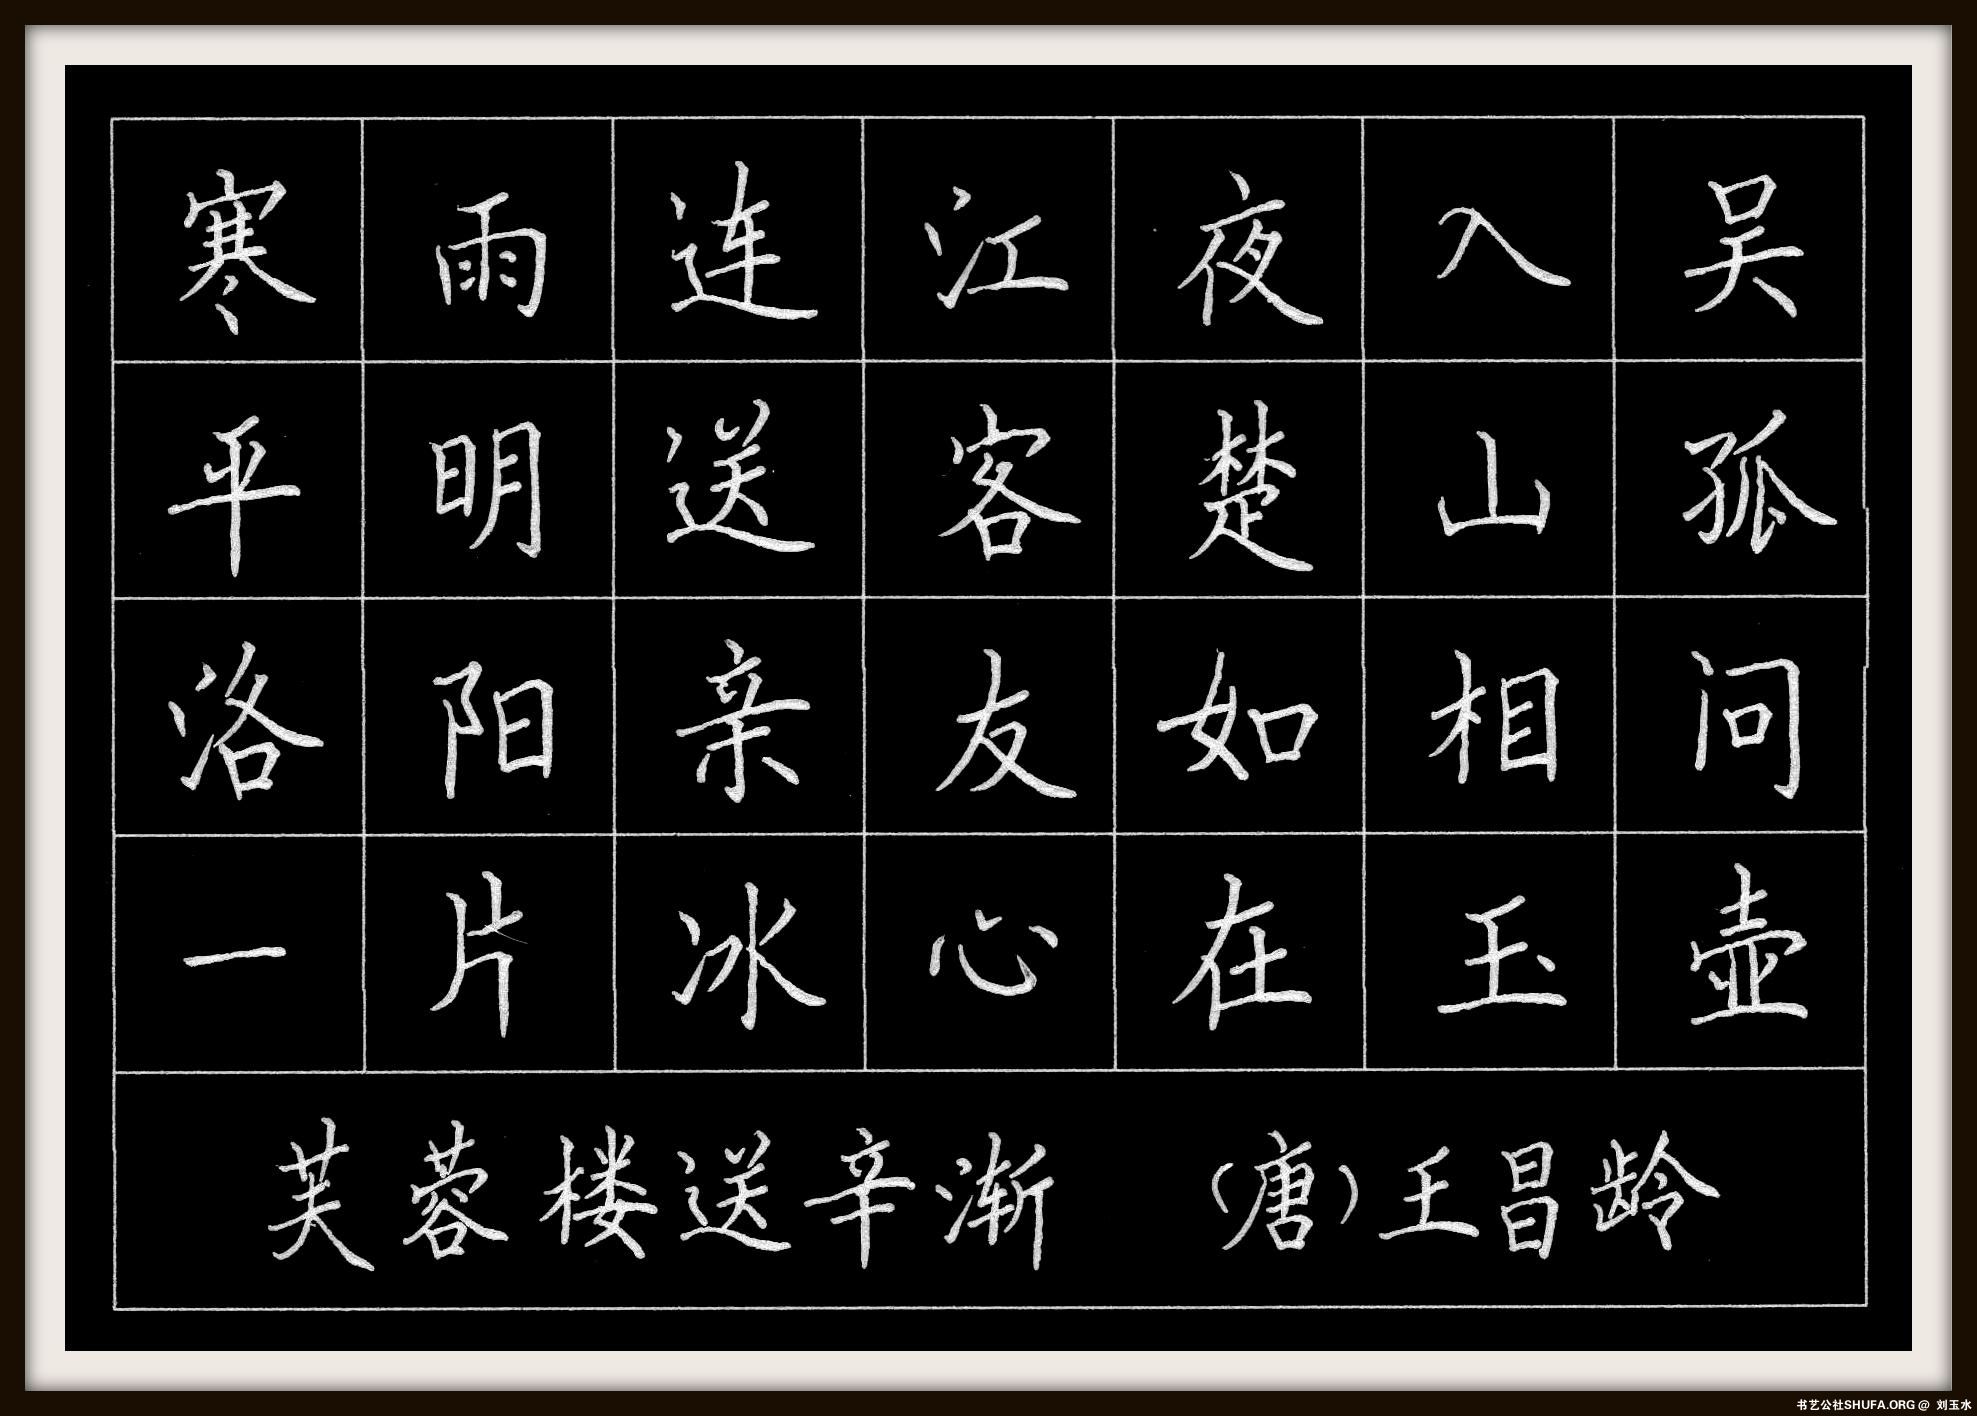 寒雨连江夜入吴
平明送客楚山孤
洛阳亲友如相问
一片冰心在玉壶
芙蓉楼送辛渐 （唐）王昌龄
书艺公社SHUFA.ORG @ 刘玉水